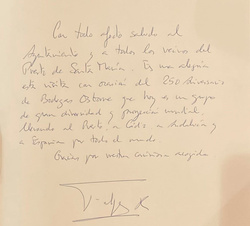 Con todo afecto saludo al
Ayuntamiento y a todos los vecinos del
Puerto de Santa María. Es una alegría
esta visita con ocasión del 250 aniversario
de Bodegas Osborne que hoy es un grupo
de gran diversidad y proyección mundial
llevando al Puerto, a Cádiz, a Andalucía y
a España por todo el mundo
Gracias por vuestra cariñosa acogida